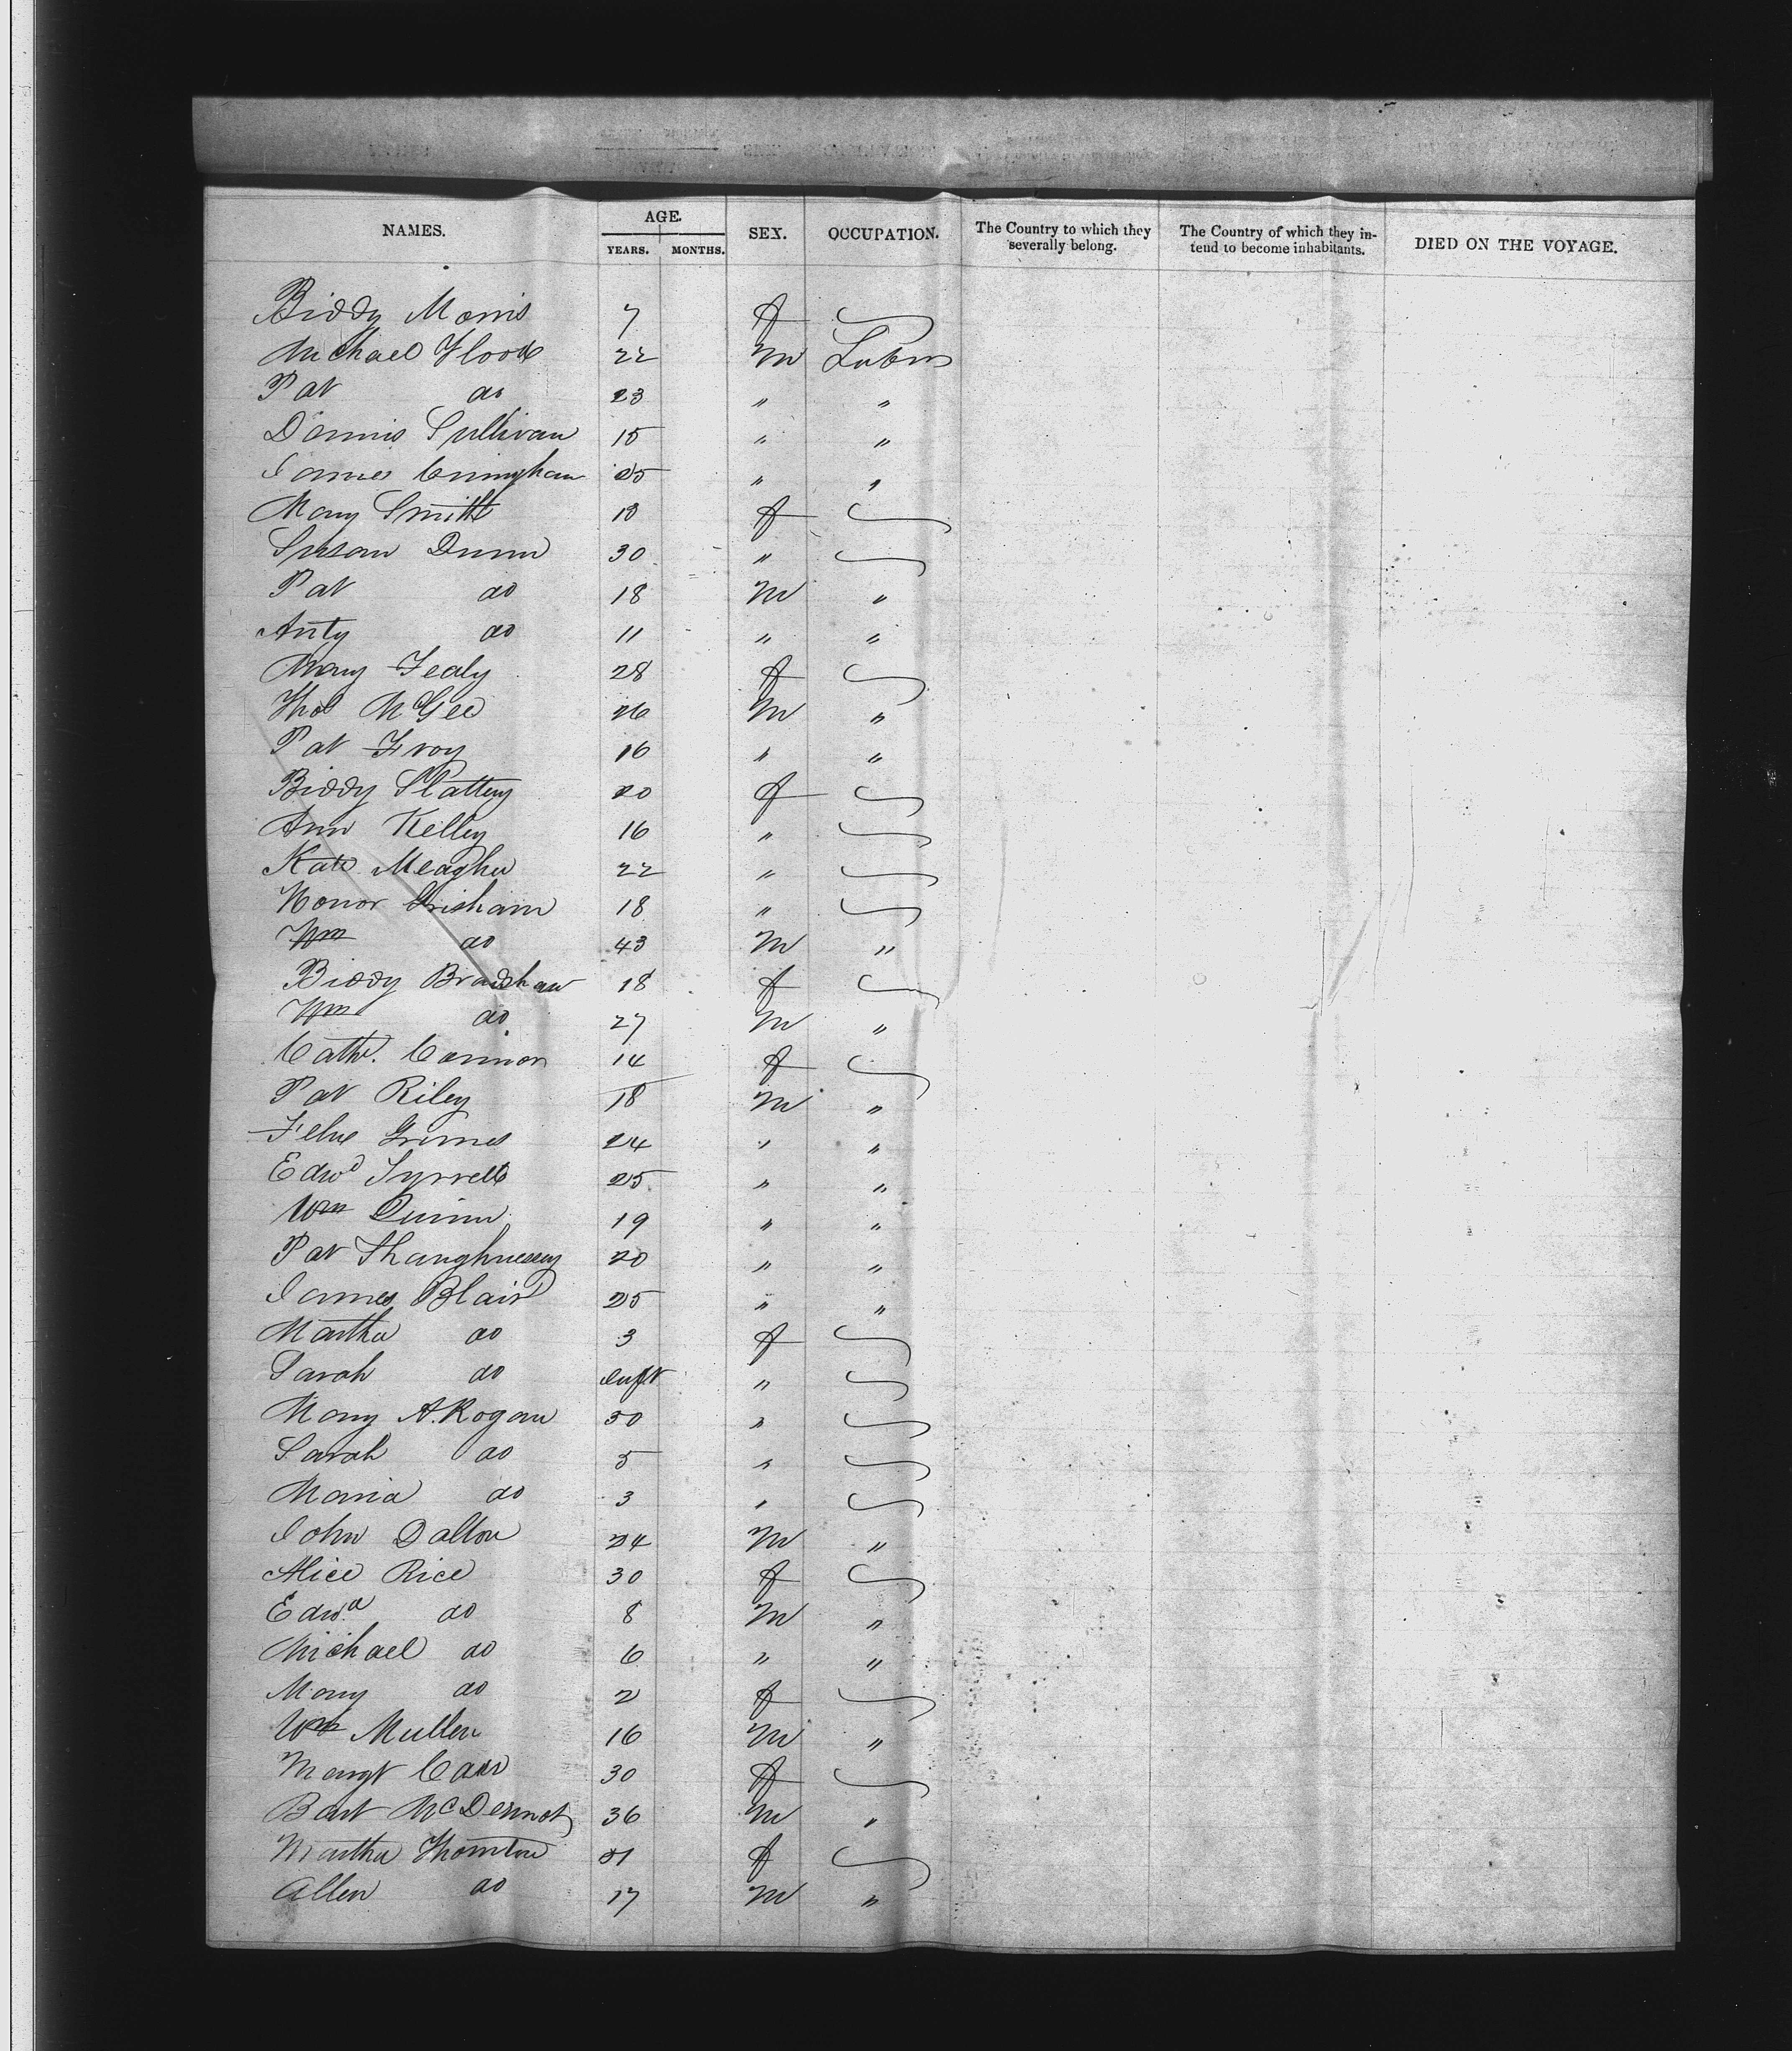 NAMES. AGE. YEARS. MONTHS. SEX. OCCUPATION. The Country to which they severally belong. The Country of which they intend to become inhabitants. DIED ON THE VOYAGE.
Biddy Morris 7 f
Michael Flood 22 m Labr
Pat do 23 " "
Dennis Sullivan 15 " "
James Cuningham 25 " "
Mary Smith 18 f
Susan Dunn 30 "
Pat do 18 m "
Anty do 11 " "
Mary Fealy 28 f
Thos McGee 26 m "
Pat Froy 16 " "
Biddy Slattery 20 f
Ann Kelley 16 "
Kate Meagher 22 "
Honor Grisham 18 "
Wm do 43 m "
Biddy Bradshaw 18 f
Wm do 27 m "
Cathe. Connor 14 f
Pat Riley 18 m "
Felix Grimes 24 " "
Edwd Tyrrell 25 " "
Wm Quinn 19 " "
Pat Shaughnessy 20 " "
James Blair 25 " "
Martha do 3 f
Sarah do Inft "
Mary A. Rogan 30 "
Sarah do 5 "
Maria do 3 "
John Dalton 24 m "
Alice Rice 30 f
Edwd do 8 m "
Michael do 6 " "
Mary do 2 f
Wm Mullen 16 m "
Margt Carr 30 f
Bart McDermot 36 m "
Martha Thornton 21 f
Allen do 17 m "